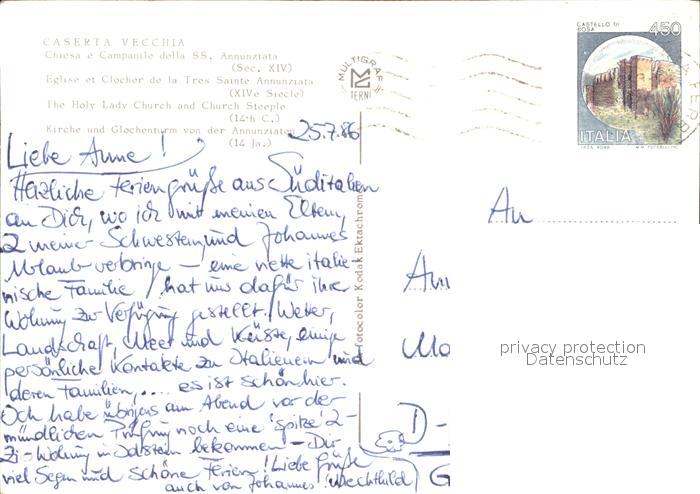 CASERTA VECCHIA
Chiesa e Campanile della SS. Annunziata
(Sec. XIV)
Eglise et Clocher de la Tres Sainte Annunziata
(XIVe Siecle)
The Holy Lady Church and Church Steeple
(14th C.)
Kirche und Glochenturm von der Annunziaten
(14 Ja.)
MULTIGRAF
TERNI
CASTELLO DI
ROSA
450
ITALIA
25.7.86
Liebe Anne!
Herzliche Feriengrüße aus Süditalien
an Dich, wo ich mit meinen Eltern,
2 meiner Schwestern, und Johannes
Urlaub verbringe – eine nette italie-
nische Familie hat uns dafür ihre
Wohnung zur Verfügung gestellt. Wetter,
Landschaft, Meer und Küste, einige
persönliche Kontakte zu Italienern und
deren Familien, .... es ist schön hier.
Ich habe übrigens am Abend vor der
mündlichen Prüfung noch eine 'spitze' 2-
Zi-Wohnung in Idstein bekommen – Dir
viel Segen und schöne Ferien! Liebe Grüße
auch von Johannes! Mechthild
Fotocolor Kodak Ektachrome
An
D-
privacy protection
Datenschutz